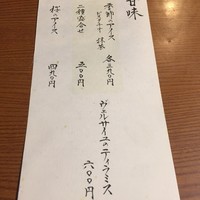 甘味
季節のアイス
ピスタチオ 抹茶
各三九〇円
二種盛合せ
五〇〇円
桜のアイス
四九〇円
ヴェルサイユのティラミス
六〇〇円